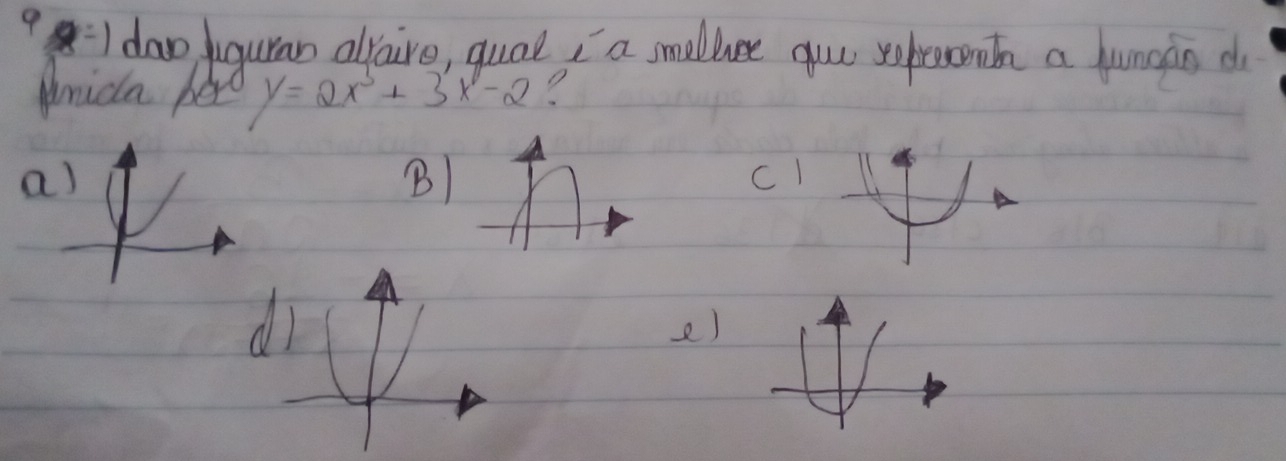 9=) das figuras abaixo, qual é a melhor que representa a função de-
finida por y = 2x² + 3x - 2?
a) B) c)
d) e)